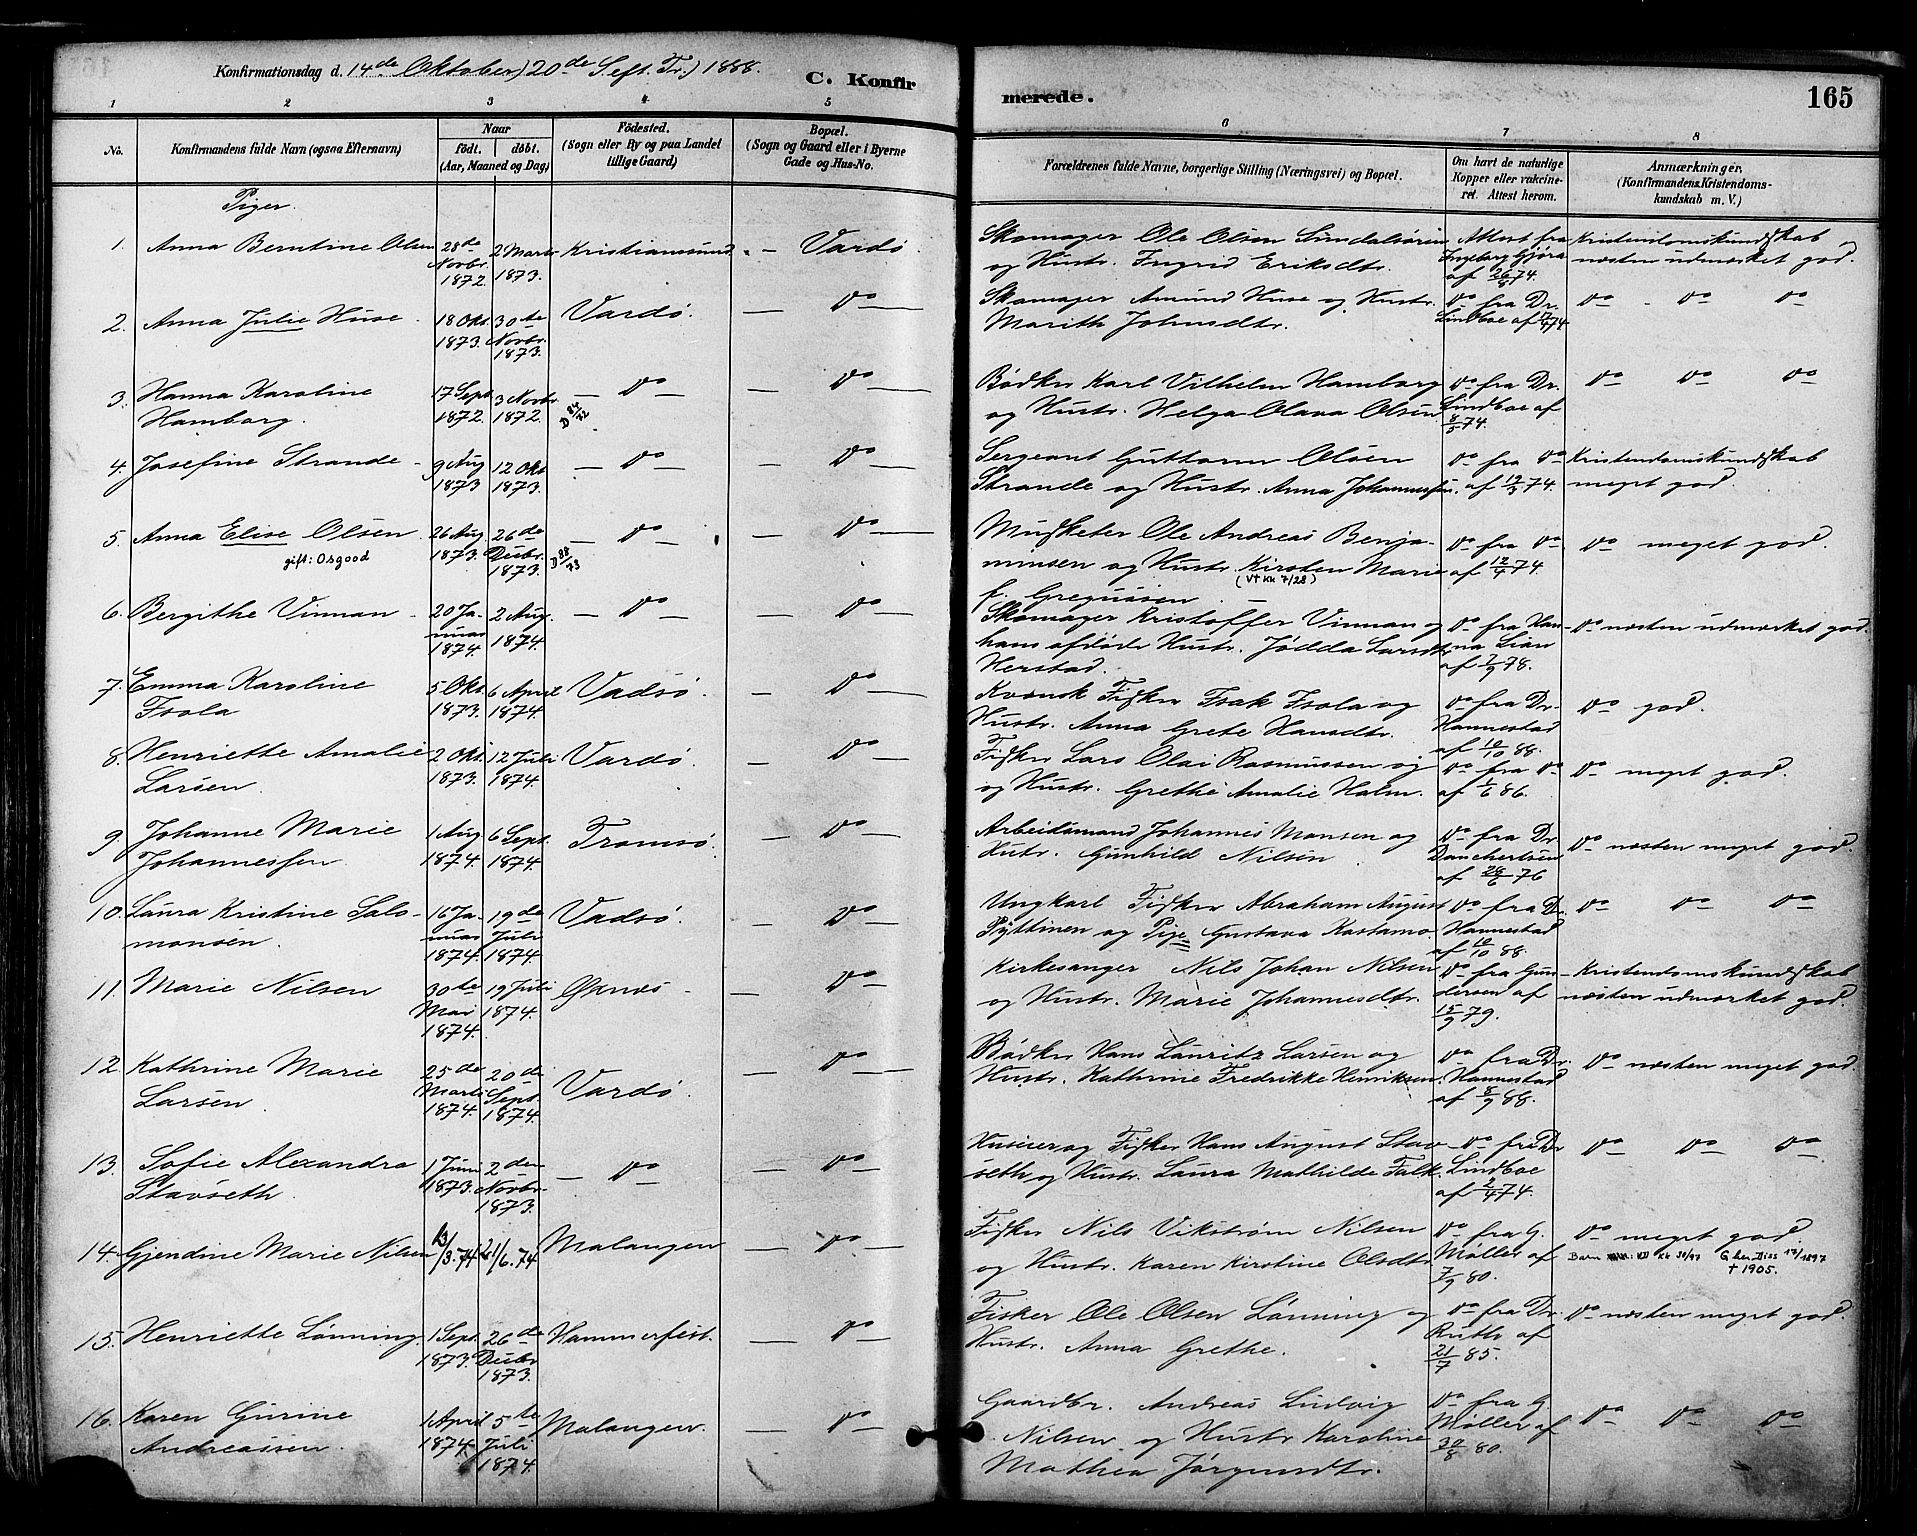 Konfirmationsdag d. 14de Oktober, 20de S. eft. Tr.) 1888.
C. Konfir
merede.
165
1 2 3 4 5 6 7 8
No.
Konfirmandens fulde Navn (ogsaa Efternavn)
Naar
födt. döbt.
(Aar, Maaned og Dag)
Födested.
(Sogn eller By og paa Landet
tillige Gaard)
Bopæl.
(Sogn og Gaard eller i Byerne
Gade og Hus-No.
Forældrenes fulde Navne, borgerlige Stilling (Næringsvei) og Bopæl.
Om havt de naturlige
Kopper eller vakcine-
ret. Attest herom.
Anmærkninger.
(Konfirmandens Kristendoms-
kundskab m. V.)
Piger.
1. Anna Berntine Olsen 28de 2 Marts Kristiansund. — Vardø. Skomager Ole Olsen Sundalsøren Attest fra Kristendomskundskab
Novbr. 1873. og Hustr. Ingrid Eriksdtr. Ingeborg Gjøra næsten udmærket god.
1872. af 26/8 74.
2. Anna Julie Huse. 18 Okt. 30te Vardø. — Do — Skomager Amund Huse og Hustr. Do fra Dr. Do - Do Do
1873. Novbr. Marith Johnsdtr. Lindboe af 74.
1873.
3. Hanna Karoline 17 Sept. 3 Novbr. — Do — — Do — Bødker Karl Vilhelm Hamborg Do fra Dr. Do Do Do
Hamborg. 1872. 1872. og Hustr. Helga Olava Olsen. Lindboe af
8/5 74.
4. Josefine Strande 9 Aug 12 Okt. — Do — — Do — Sergeant Guttorm Olsen Do fra Do Kristendomskundskab
1873 1873. Strande og Hustr. Anna Johannessen. af 19/3 74. meget god.
5. Anna Elise Olsen 26 Aug 26de — Do — — Do — Musketer Ole Andreas Benja- Do fra Do Do meget god.
gift: Osgood 1873. Decbr. D 88/73 minsen og Hustr. Kirsten Marie af 12/4 74.
1873. (Vt KK 7/28)
f. Gregussen. —
6. Bergithe Vinnan 20 Ja- 2 Aug. — Do — — Do — Skomager Kristoffer Vinnan og Do fra Han- Do næsten udmærket god.
nuar 1874. hans afdøde Hustr. Jødda Larsdtr. na Lian
1874. Herstad. af 7/9 78.
7. Emma Karoline 5 Okt. 6 April Vadsø. — Do — Kvænsk Fisker Isak Isola og Do fra Dr. Do god.
Isola 1873. 1874. Hustr. Anna Grete Hansdtr. Hannestad
af 10/10 88.
8. Henriette Amalie 2 Okt. 12 Juli Vardø. — Do — Fisker Lars Olai Rasmussen og Do fra Do Do meget god.
Larsen. 1873. 1874. og Hustr. Grethe Amalie Holm. af 1/6 86.
9. Johanne Marie 1 Aug 6 Sept. Tromsø. — Do — Arbeidsmand Johannes Monsen og Do fra Dr. Do næsten meget god.
Johannessen. 1874. 1874. Hutr. Gunhild Nilsen. Danchertsen
af 28/6 76
10. Laura Kristine Salo- 16 Ja- 19de Vadsø. — Do — Ungkarl Fisker Abraham August Do fra Dr. Do Do Do
monsen. nuar Juli Pyttinen og Pige Gustava Kastamo. Hannestad
1874. 1874. af 10/10 88.
11. Marie Nilsen 30te 19 Juli Øxnes — Do — Kirkesanger Nils Johan Nilsen Do fra Gun- Kristendomskundskab
Mai 1874. og Hustr. Marie Johannesdtr. dersen af næsten udmærket god.
1874. 15/9 79.
12. Kathrine Marie 25de 20de Vardø. — Do — Bødker Hans Lauritz Larsen og Do fra Dr. Do næsten meget god.
Larsen. Marts Sept. Hustr. Kathrine Fredrikke Henriksen. Hannestad
1874. 1874. af 8/9 88.
13. Sofie Alexandra 1 Juni 2den — Do — — Do — Huseier og Fisker Hans August Stav- Do fra Dr Do Do Do
Stavseth. 1873. Novbr. seth og Hustr. Laura Mathilde Falk. Lindboe
1873. af 2/4 74.
14. Gjendine Marie Nilsen 13/3.74 21/6.74 Malangen — Do — Fisker Nils Vikstrøm Nilsen Do fra G. Do meget god.
og Hustr. Karen Kirstine Olsdtr. Møller af Barn KK 30/97 G her Diss 17/1897
7/9 80. † 1905.
15. Henriette Lønning. 1 Sept. 26de Hammerfest. — Do — Fisker Ole Olsen Lønning og Do fra Dr. Do næsten meget god.
1873. Decbr. Hustr. Anna Grethe. Ruth af
1873. 21/7 85.
16. Karen Gurine 1 April 5te Malangen. — Do — Gaardbr. Andreas Ludvig Do fra G. Do Do Do
Andreassen. 1874. Juli Nilsen og Hustr Karoline Møller af
1874. Mathea Jørgensdtr. 30/8 80.